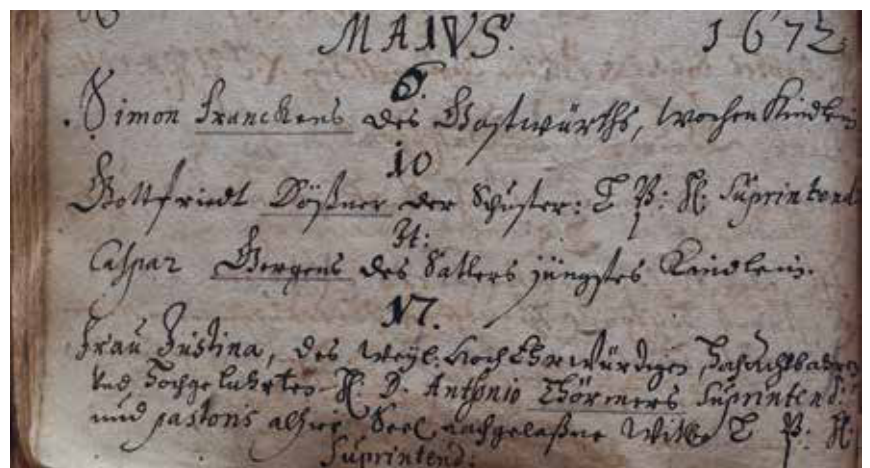 MAIVS. 1672
6.
Simon Franckens des Gastwürths, wochen Kindlein
10
Gottfriedt Dößner der Schuster: T P: H: Suprintend
It:
Caspar Gergens des Satlers jüngstes Kindlein.
17.
Frau Justina, des Weyl. HochEhrwürdigen, Hochachtbahren
Und Hochgelahrten H. D. Anthonio Thörmers Suprintend:
und pastoris alhier Seel. nachgelaßne Witbe T P: H:
Suprintend: